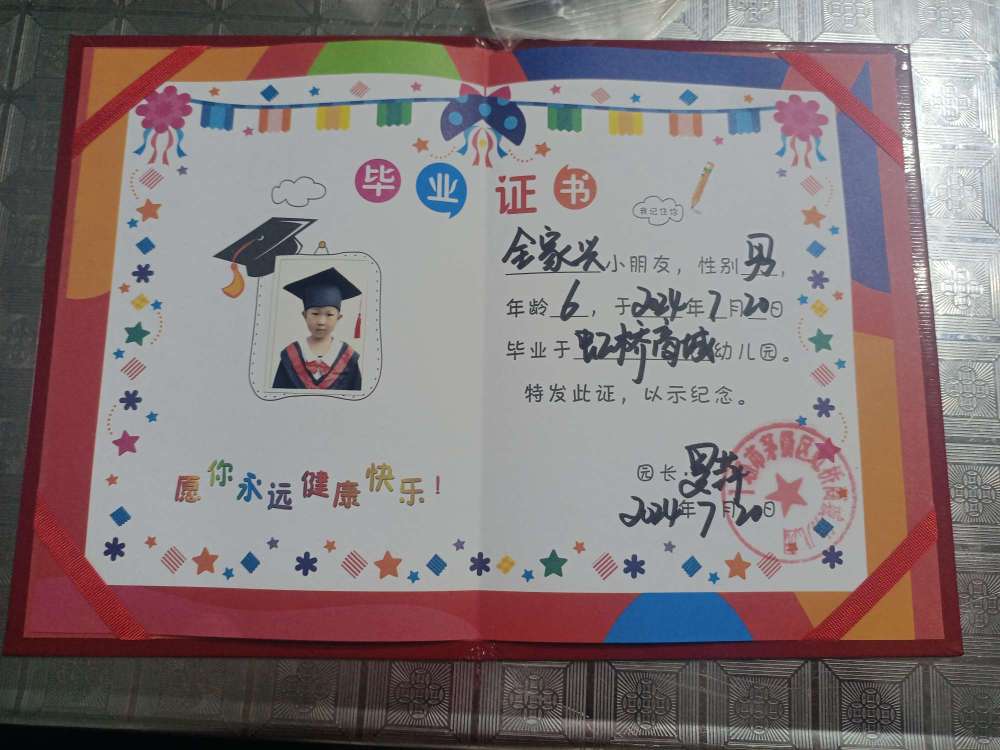 毕业证书
我记住你
金家兴小朋友，性别男，
年龄6，于2024年7月20日
毕业于虹桥商城幼儿园。
特发此证，以示纪念。
愿你永远健康快乐！
园长：
2024年7月20日